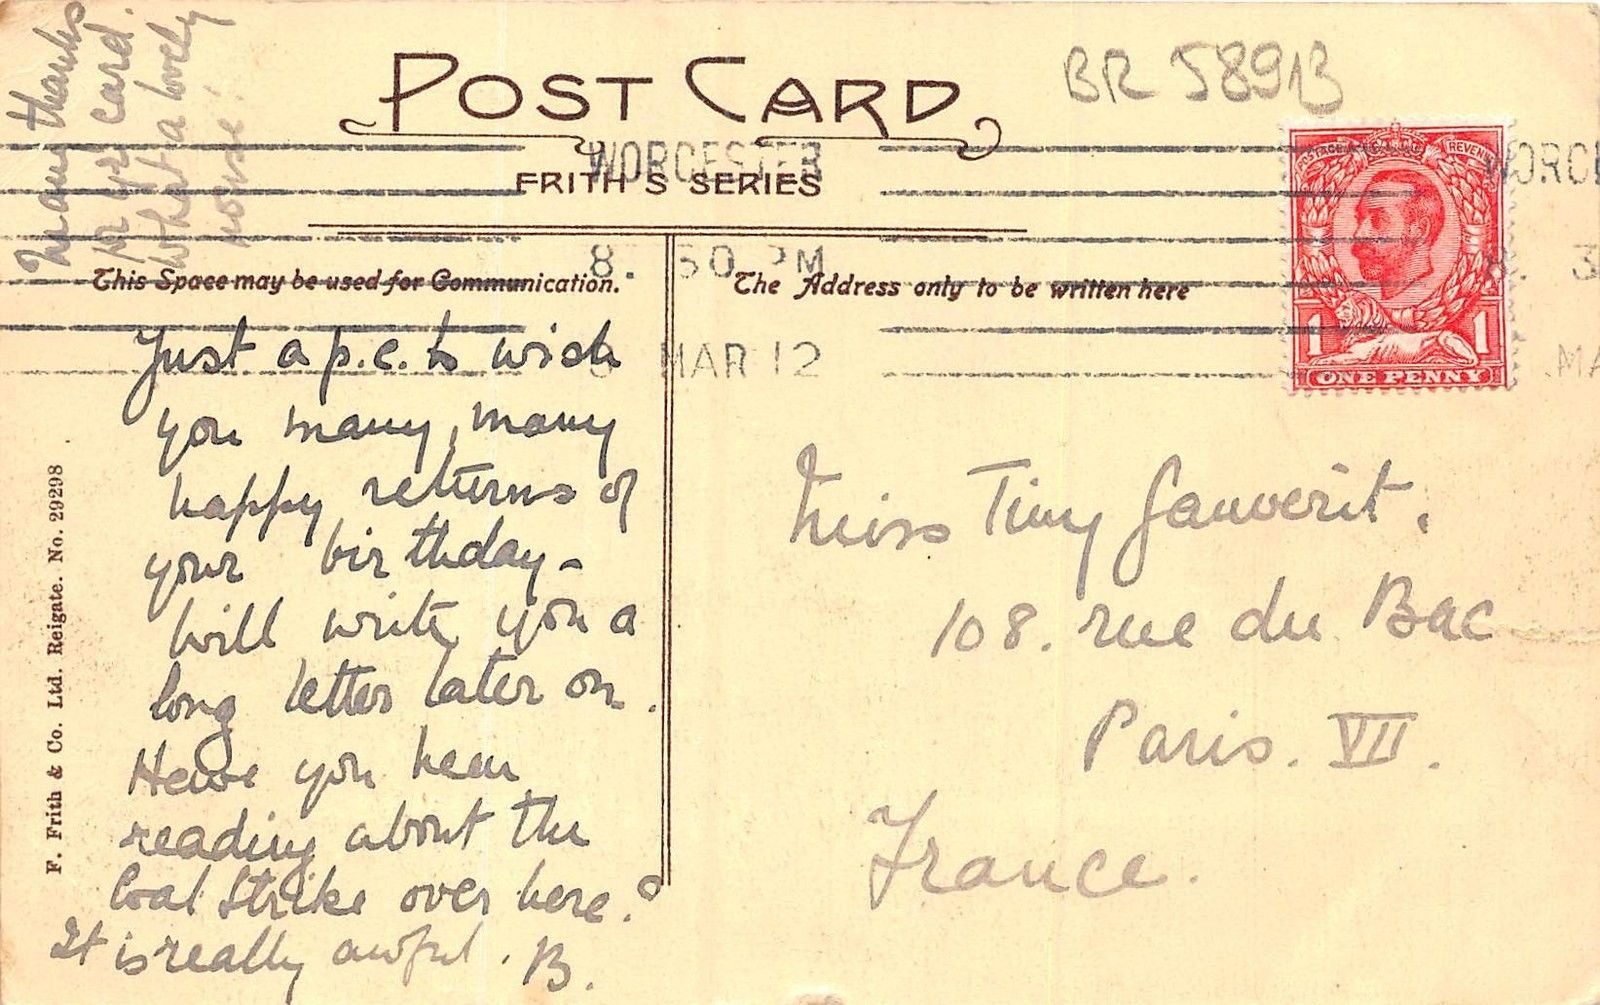 Many thanks
for yr card.
What a lovely
house!
POST CARD
BR 5891B
WORCESTER
FRITH'S SERIES
POSTAGE REVENUE
WORCE
8. 30 PM
This Space may be used for Communication.
The Address only to be written here
MAR 12
MA
1 1
ONE PENNY
Just a p.c. to wish
you many, many
happy returns of
your birthday -
will write you a
long letter later on.
Have you been
reading about the
Coal Strike over here?
It is really awful. B.
Miss Tiny Gauverit.
108. rue du Bac
Paris. VII.
France.
F. Frith & Co. Ltd. Reigate. No. 29298